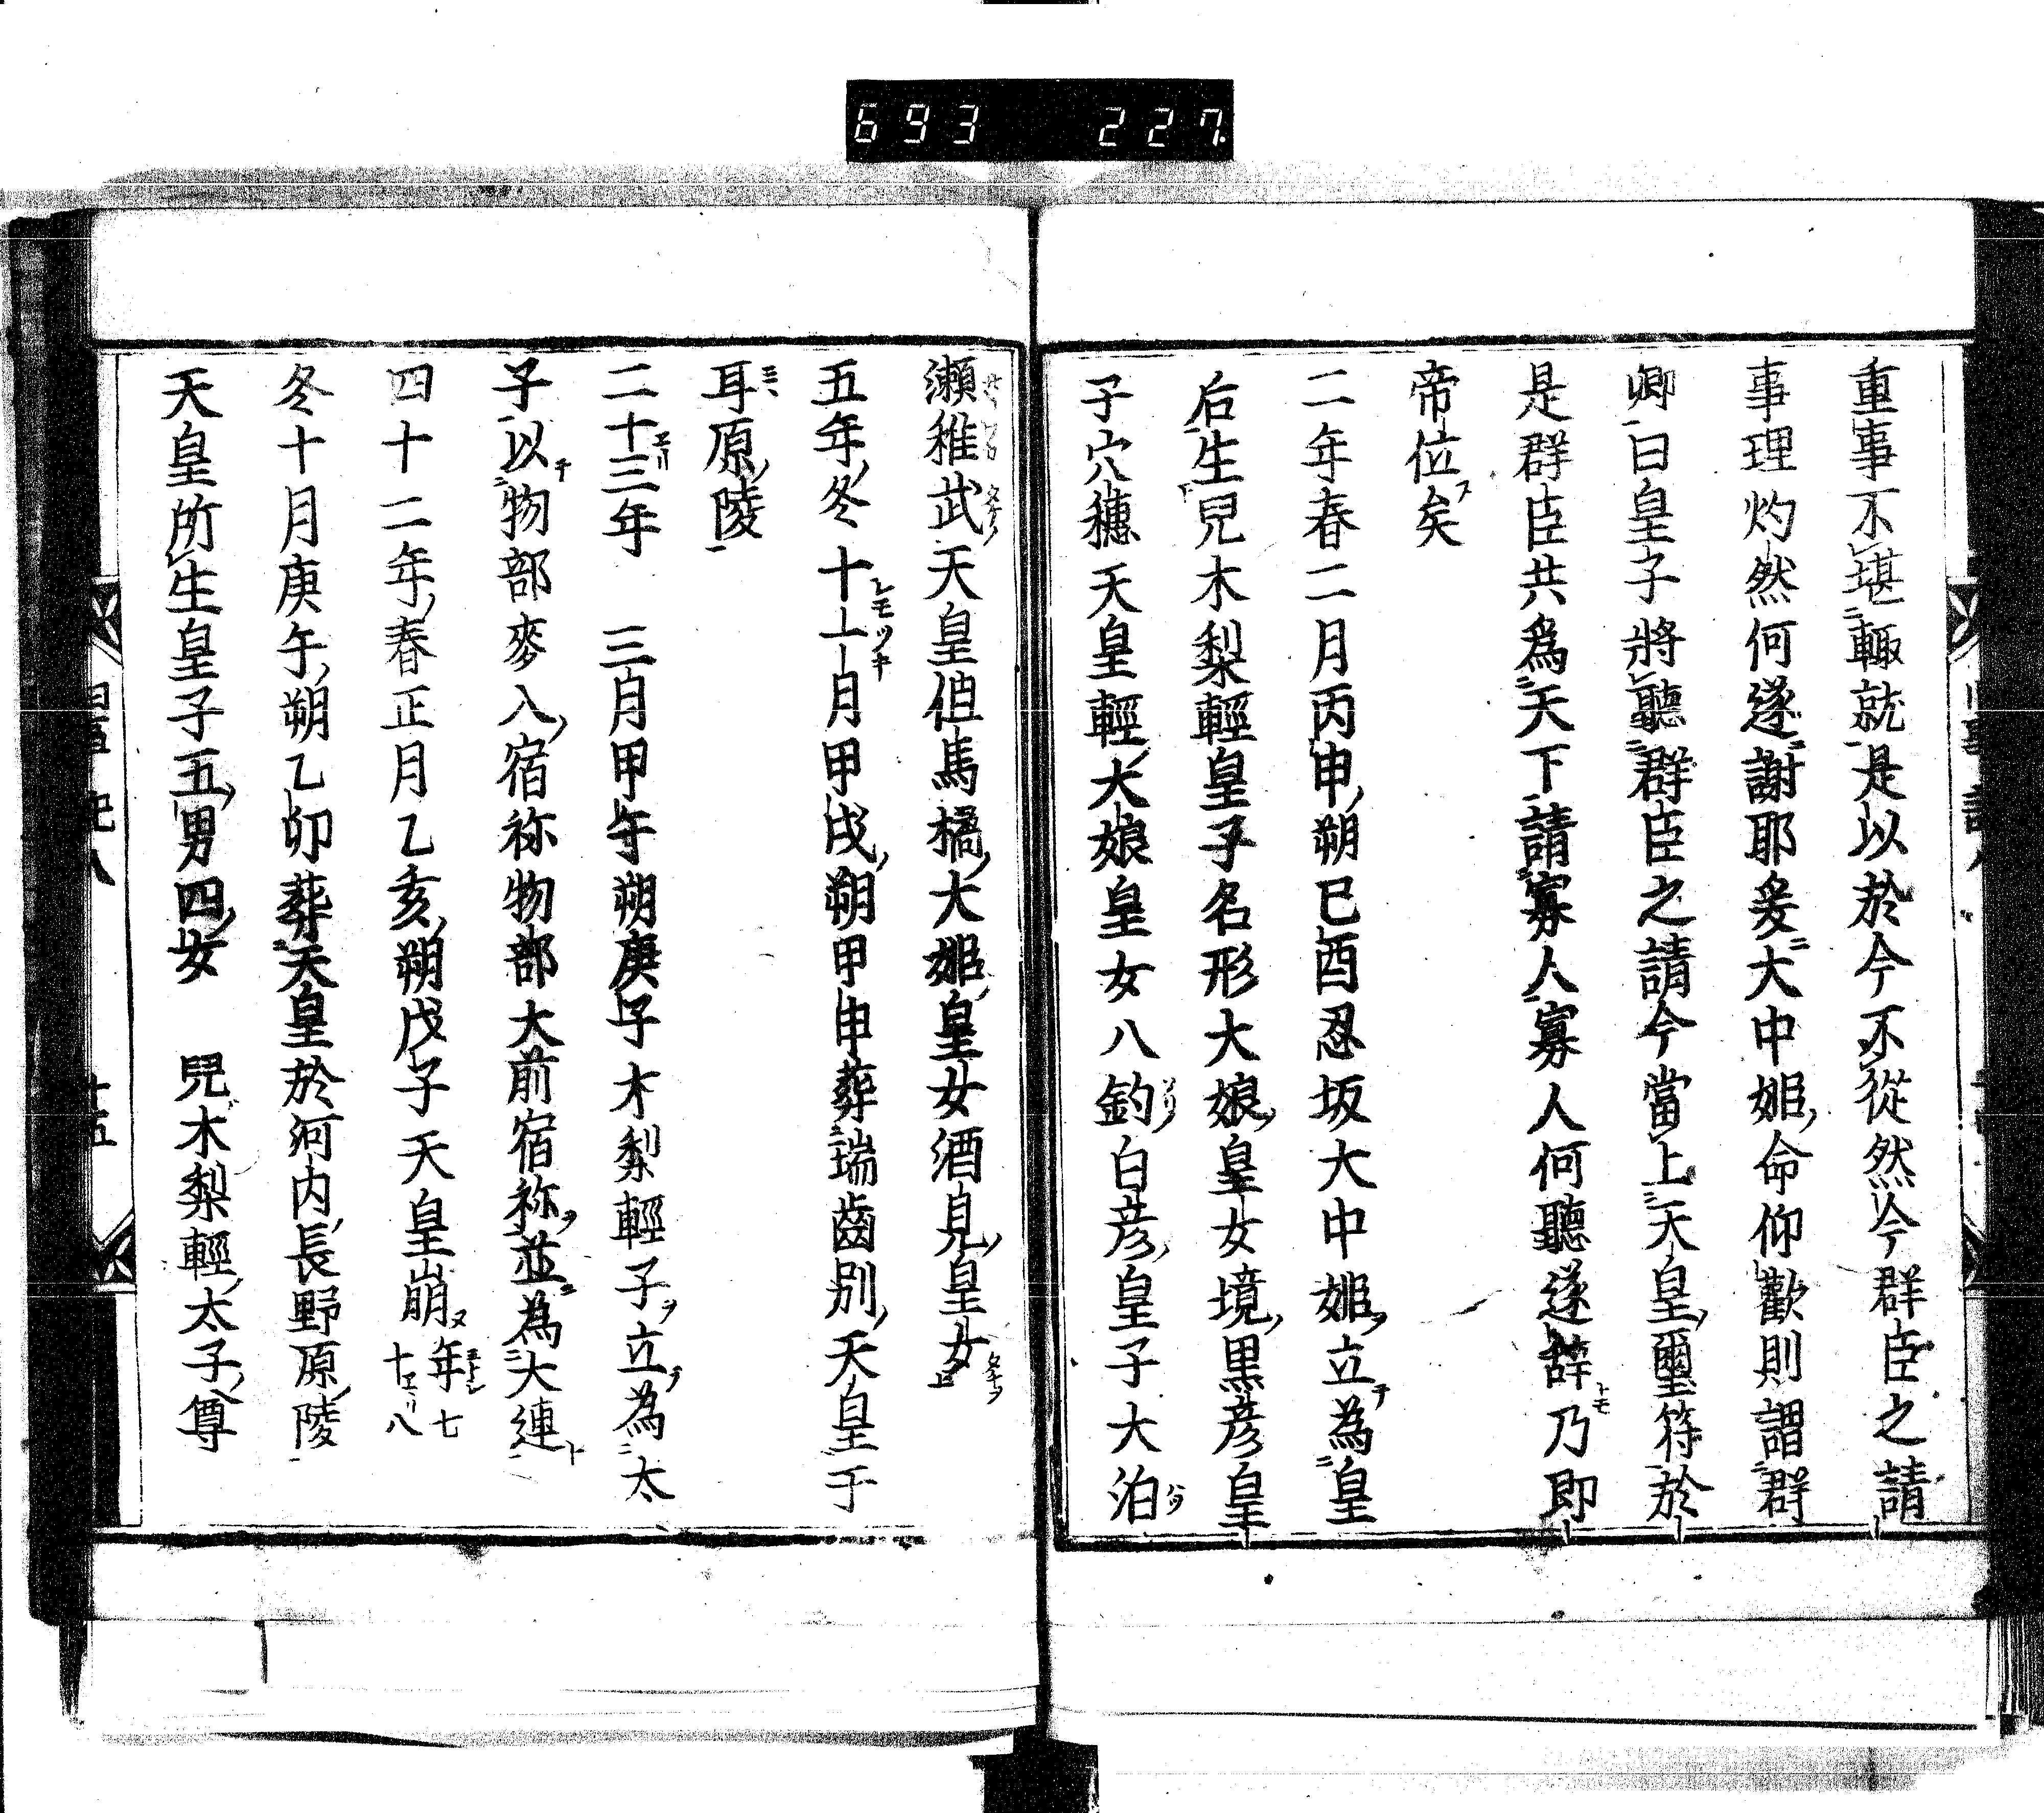 693 227
重事不堪輙就是以於今不從然今群臣之請
事理灼然何遂謝耶爰大中姫命仰歡則謂群
卿曰皇子將聽群臣之請今當上天皇璽符於
是群臣共為天下請寡人寡人何聽遂辞乃即
帝位矣
二年春二月丙申朔巳酉忍坂大中姫立為皇
后生兒木梨輕皇子名形大娘皇女境黒彦皇
子穴穗天皇輕大娘皇女八釣白彦皇子大泊
瀬稚武天皇但馬橘大姫皇女酒見皇女
五年冬十一月甲戌朔甲申葬瑞齒別天皇于
耳原陵
二十三年 三月甲午朔庚子木梨輕子立為太
子以物部麥入宿祢物部大前宿祢並為大連
四十二年春正月乙亥朔戊子天皇崩年七十八
冬十月庚午朔乙卯葬天皇於河内長野原陵
天皇所生皇子五男四女 兒木梨輕太子尊